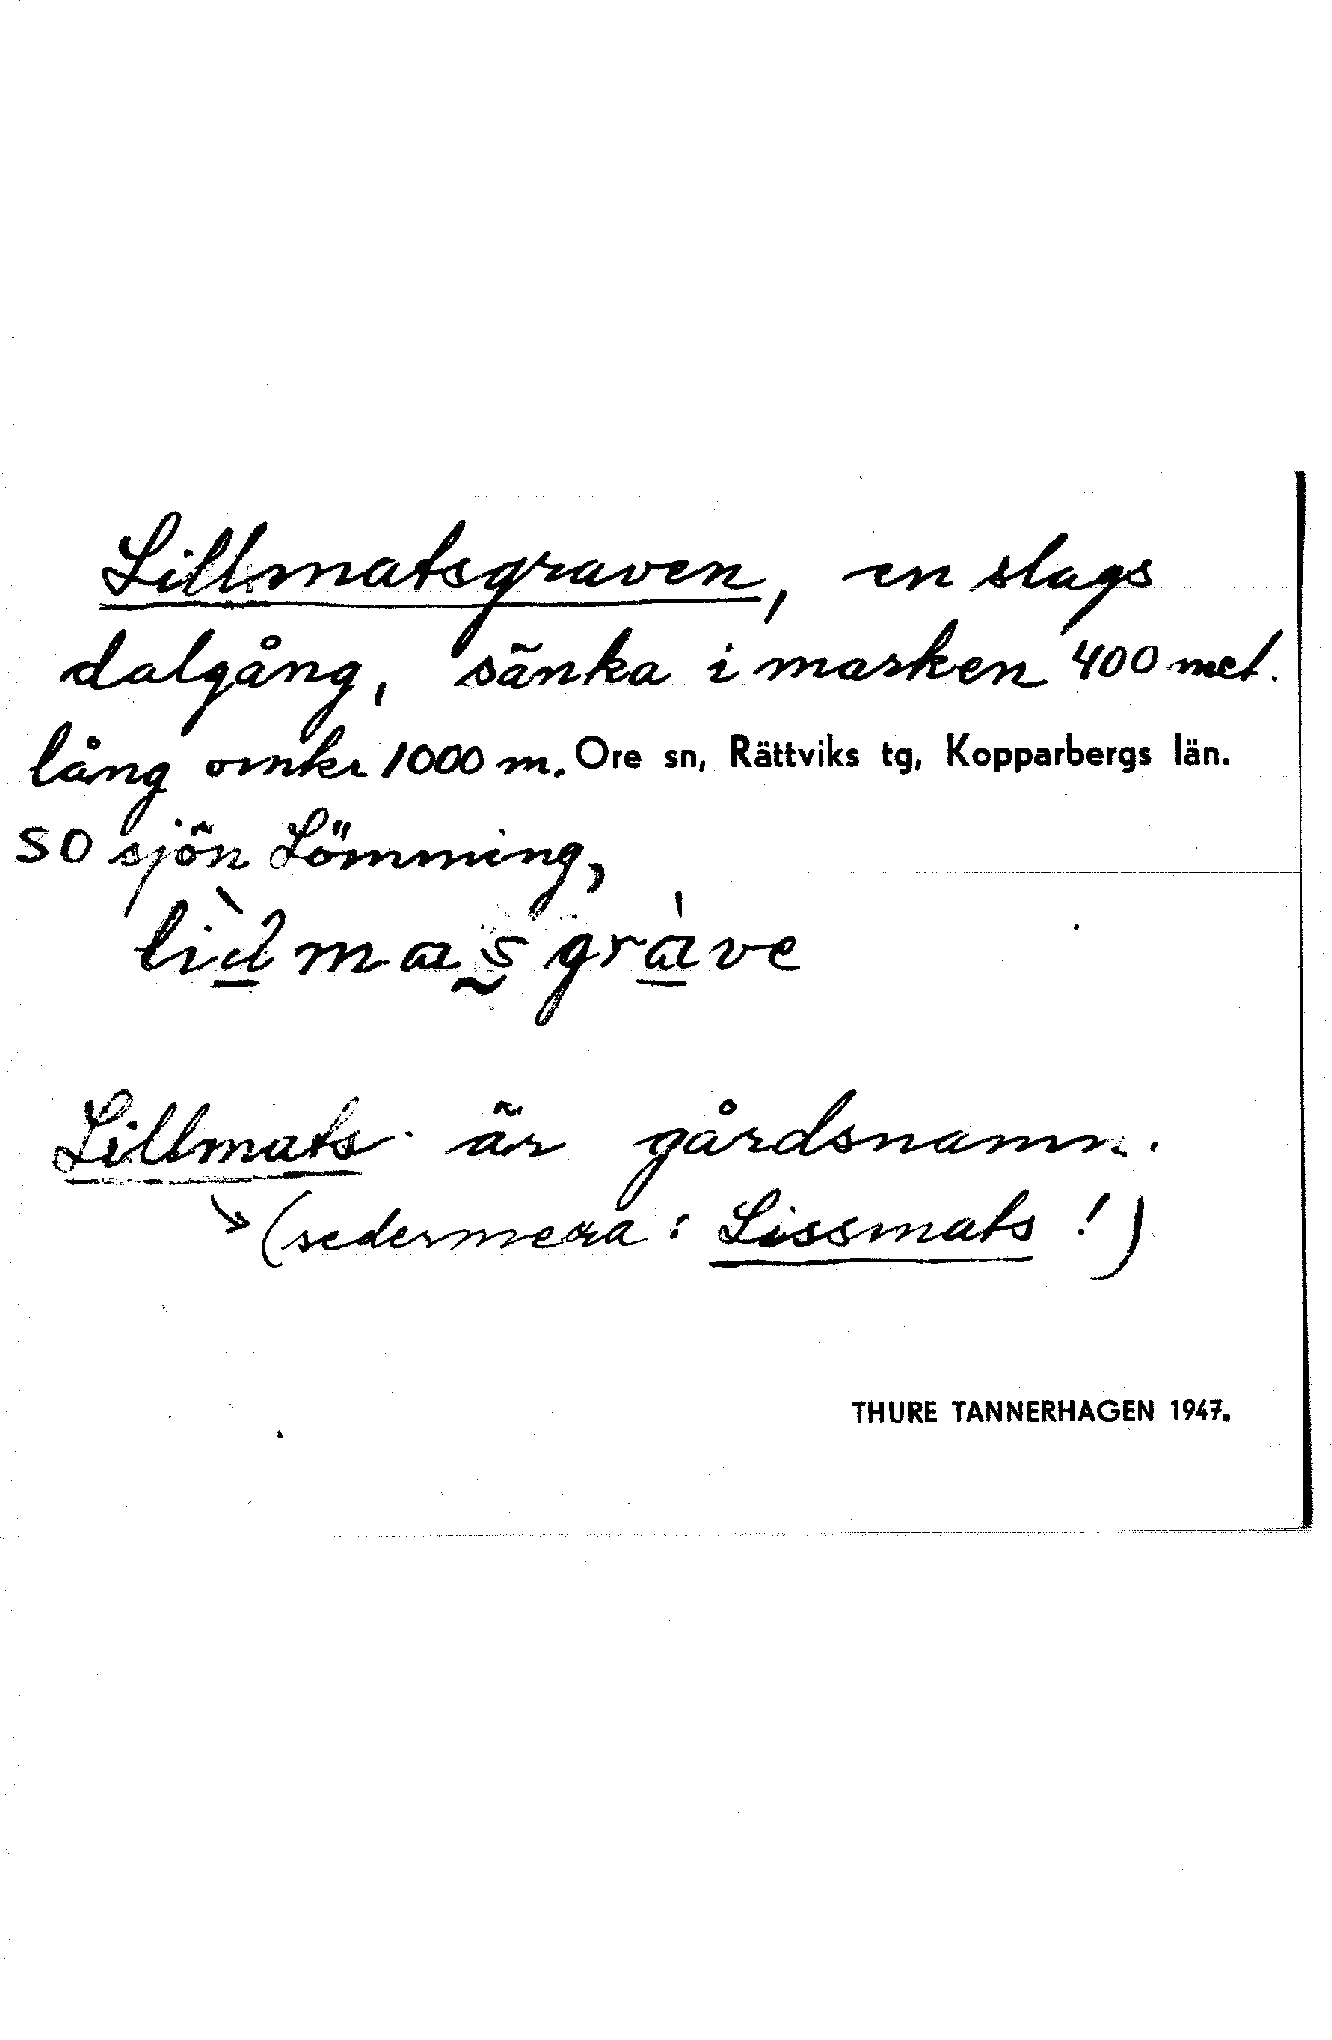 Lillmatsgraven, en slags
dalgång, sänka i marken 400 met.
lång omkr 1000 m. Ore sn, Rättviks tg, Kopparbergs län.
SO sjön Lömming,
Lillmats är gårdsnamn.
(sedermera: Lissmats!)
THURE TANNERHAGEN 1947.